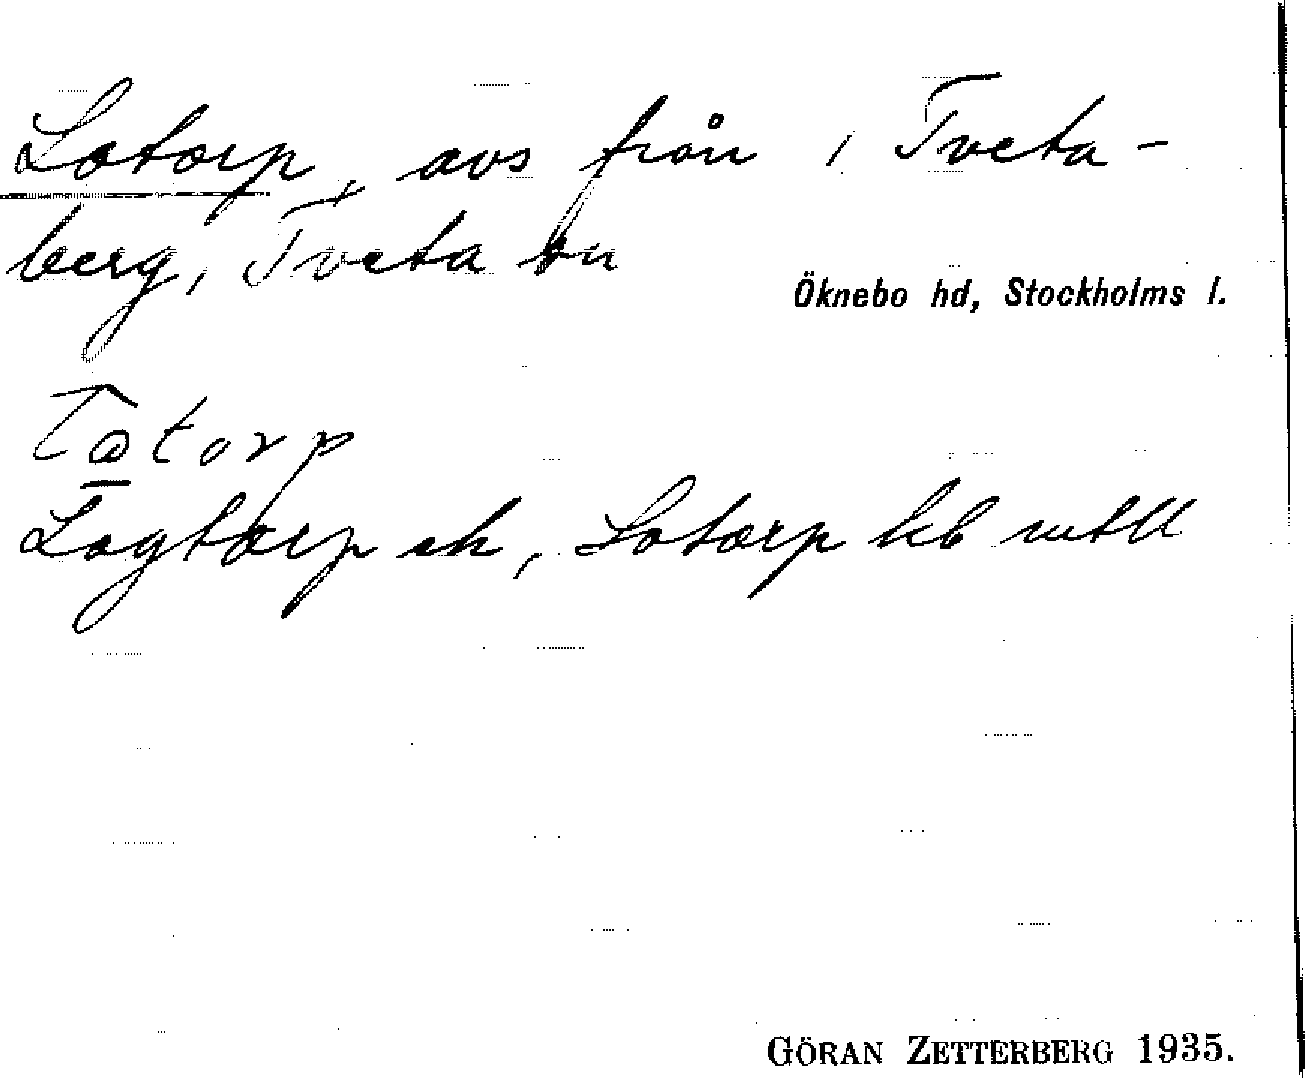 Lotorp, avs från 1 Tveta-
berg, Tveta sn
Öknebo hd, Stockholms l.
torp
Logtorp ek, Lotorp kb mtll
GÖRAN ZETTERBERG 1935.